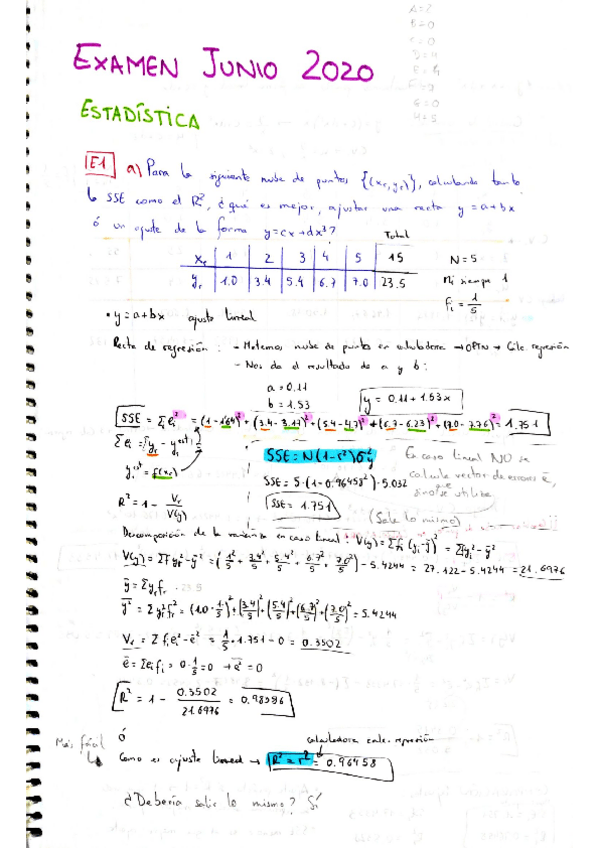 EXAMEN JUNIO 2020
ESTADÍSTICA
E1 a) Para la siguiente nube de puntos {(xr, yr)}, calculando tanto
la SSE como el R², ¿qué es mejor, ajustar una recta y = a+bx
ó un ajuste de la forma y = cx + dx³?
Total
xr 1 2 3 4 5 15
yr 1.0 3.4 5.4 6.7 7.0 23.5
N = 5
Ni siempre 1
fi = 1/5
• y = a+bx ajuste lineal
Recta de regresión: - Metemos nube de puntos en calculadora → OPTN → Calc. regresión
- Nos da el resultado de a y b:
a = 0.11
b = 1.53
y = 0.11 + 1.53x
SSE = Σ ei² = (1-1.64)² + (3.4-3.17)² + (5.4-4.7)² + (6.7-6.23)² + (7.0-7.76)² = 1.751
Σei = Σyr - yi^est
yi^est = f(xr)
SSE = N(1-r²)σy²
SSE = 5·(1-0.96458²)·5.032
SSE = 1.751
En caso lineal NO se
calcula vector de errores e,
sino que se utiliza
(Sale lo mismo)
R² = 1 - Vr/V(y)
Descomposición de la varianza en caso lineal: V(y) = Σfi(yi-ȳ)² = Σfyi² - ȳ²
V(y) = Σfyr² - ȳ² = (1²/5 + 3.4²/5 + 5.4²/5 + 6.7²/5 + 7.0²/5) - 5.4244 = 27.122 - 5.4244 = 21.6976
ȳ = Σyr fr = 23.5
ȳ² = Σyr² fr² = (1.0·1/5)² + (3.4/5)² + (5.4/5)² + (6.7/5)² + (7.0/5)² = 5.4244
Vr = Σ fi ei² - ē² = 1/5 · 1.751 - 0 = 0.3502
ē = Σei fi = 0·1/5 = 0 → ē² = 0
R² = 1 - 0.3502/21.6976 = 0.98386
ó
calculadora calc. regresión
Más fácil
Como es ajuste lineal → R² = r² = 0.96458
¿Debería salir lo mismo? Sí